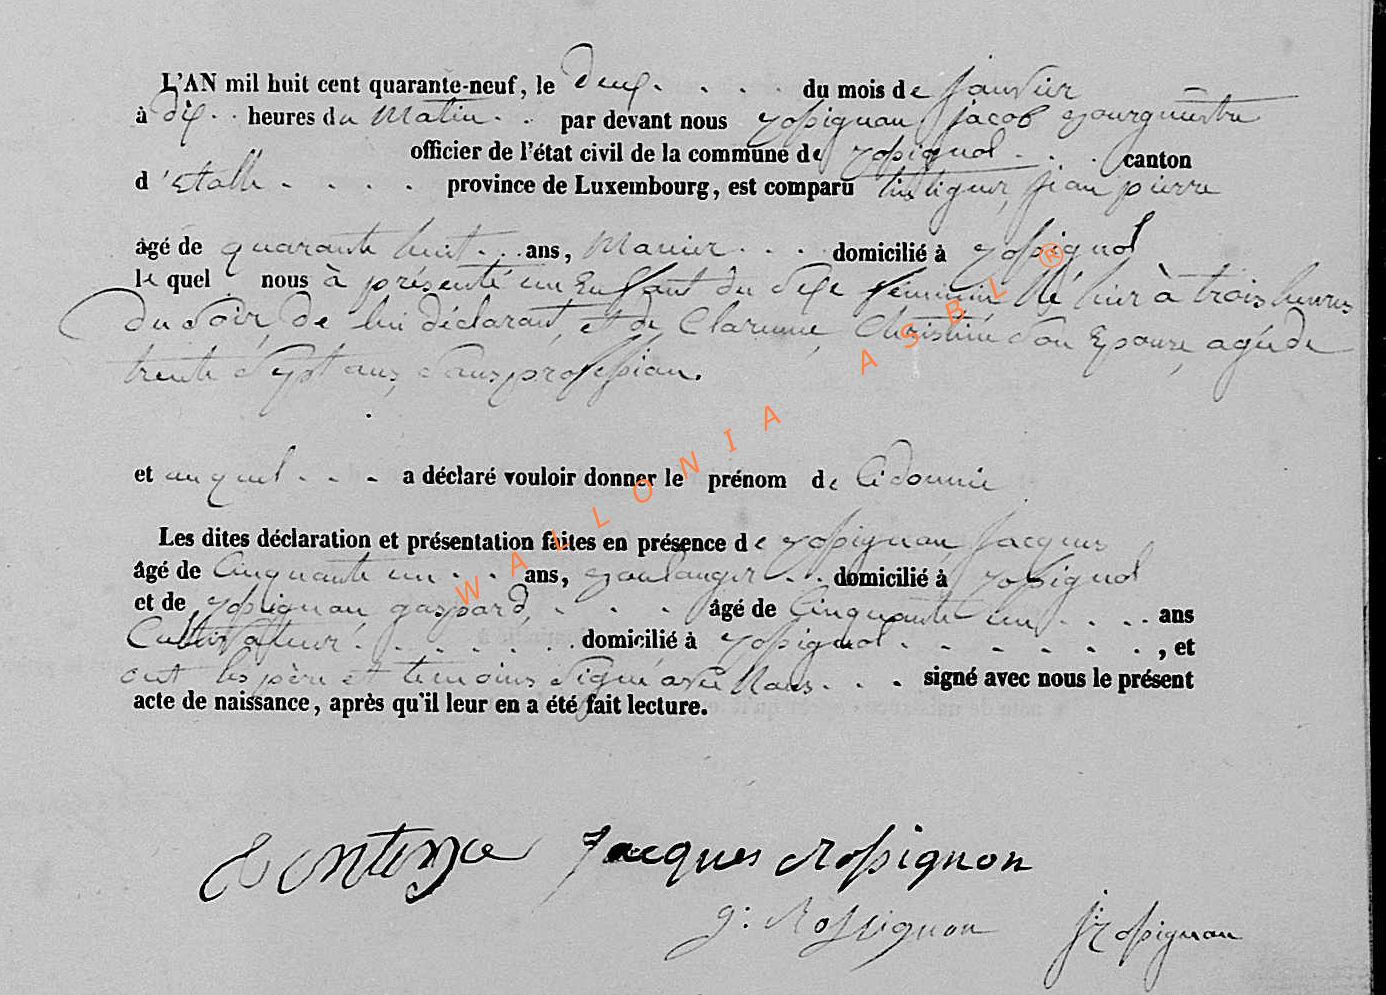 L'AN mil huit cent quarante-neuf, le deux . . . . du mois de janvier
à dix . . heures du matin . . par devant nous rossignon jacob bourgmestre
officier de l'état civil de la commune de rossignol . . . canton
d'étalle . . . . province de Luxembourg, est comparu jean pierre
âgé de quarante huit . . ans, . . . domicilié à rossignol
le quel nous à présenté un Enfant du sexe féminin Né hier à trois heures
du soir, de lui déclarant, et de Christine son Epouse, agée de
trente sept ans, sans profession.
et auquel . . . a déclaré vouloir donner le prénom de
Les dites déclaration et présentation faites en présence de rossignon jacques
âgé de Cinquante un . . . ans, boulanger . . . domicilié à rossignol
et de rossignon gaspard, . . . . âgé de Cinquante un . . . . ans
Cultivateur . . . . . . . domicilié à rossignol . . . . . . , et
ont les père et temoins signé avec Nous . . . signé avec nous le présent
acte de naissance, après qu'il leur en a été fait lecture.
Jacques Rossignon
g: Rossignon j: rossignon
WALLONIA ASBL ®